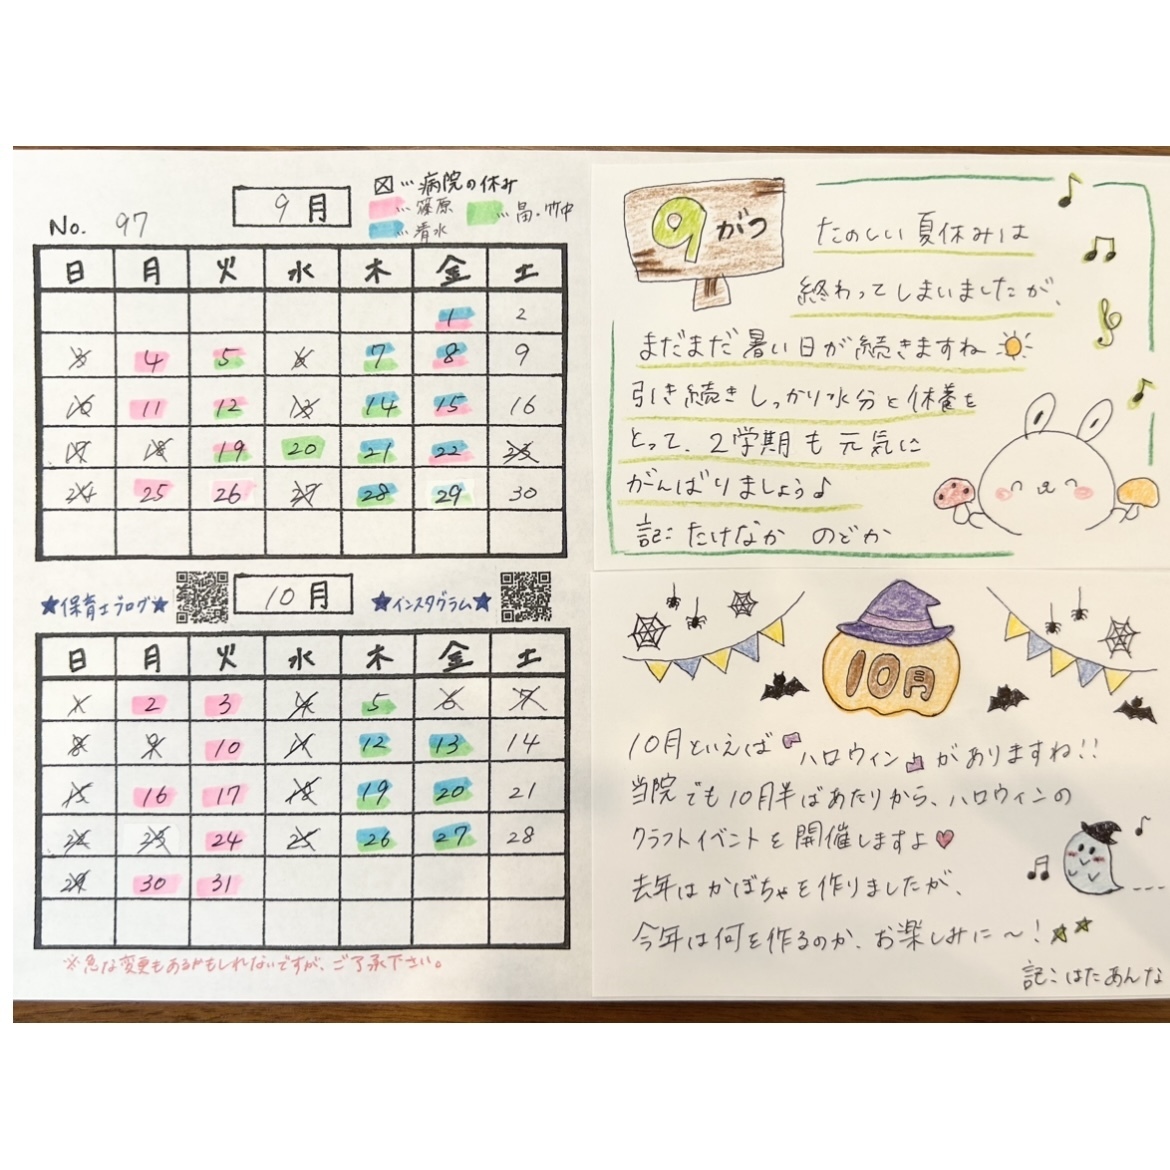 No. 97
9月
☒…病院の休み
…篠原
…畠・竹中
…清水
日 月 火 水 木 金 土
1 2
3 4 5 6 7 8 9
10 11 12 13 14 15 16
17 18 19 20 21 22 23
24 25 26 27 28 29 30
★保育士ブログ★
10月
★インスタグラム★
日 月 火 水 木 金 土
1 2 3 4 5 6 7
8 9 10 11 12 13 14
15 16 17 18 19 20 21
22 23 24 25 26 27 28
29 30 31
※急な変更もあるかもしれないですが、ご了承下さい。
9がつ
たのしい夏休みは
終わってしまいましたが、
まだまだ暑い日が続きますね
引き続きしっかり水分と休養を
とって、2学期も元気に
がんばりましょう♪
記:たけなか のどか
10月
10月といえば『ハロウィン』がありますね!!
当院でも10月半ばあたりから、ハロウィンの
クラフトイベントを開催しますよ♥
去年はかぼちゃを作りましたが、
今年は何を作るのか、お楽しみに〜!★★
記:はたあんな